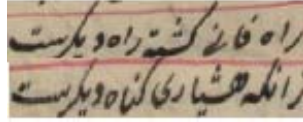 راه فانے کشتہ راہ دیکرست
زانکہ هشیاری کناه دیکرست